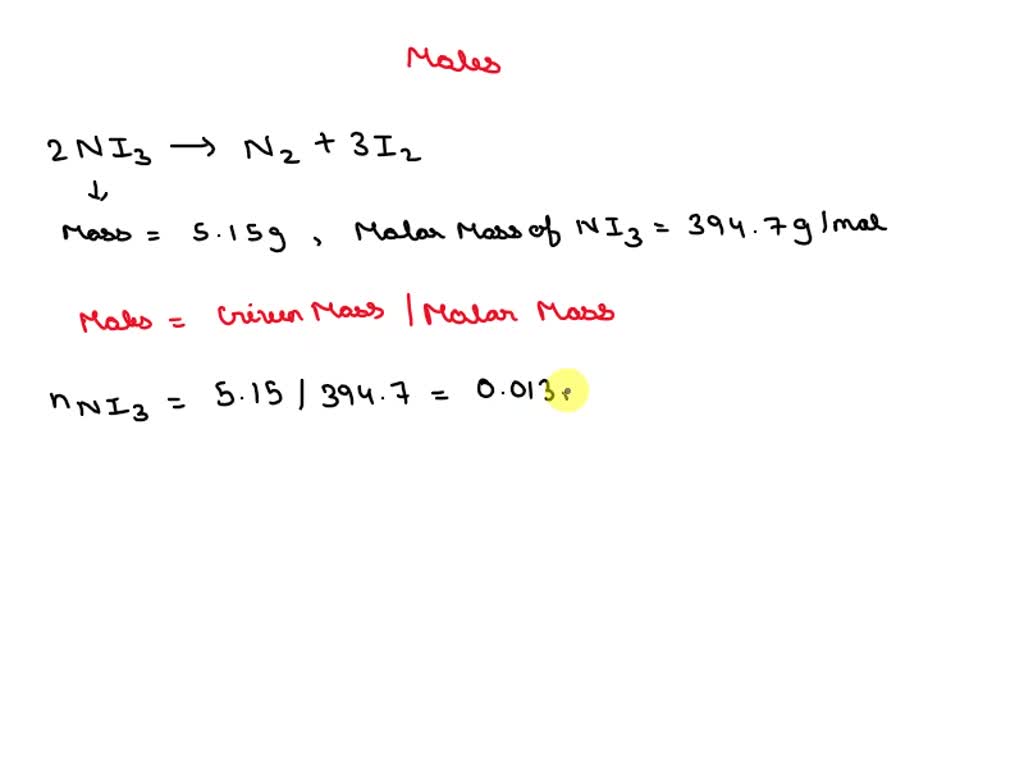 Moles
2NI₃ → N₂ + 3I₂
↓
Mass = 5.15g , Molar Mass of NI₃ = 394.7g/mol
Moles = Given Mass / Molar Mass
nNI₃ = 5.15 / 394.7 = 0.013